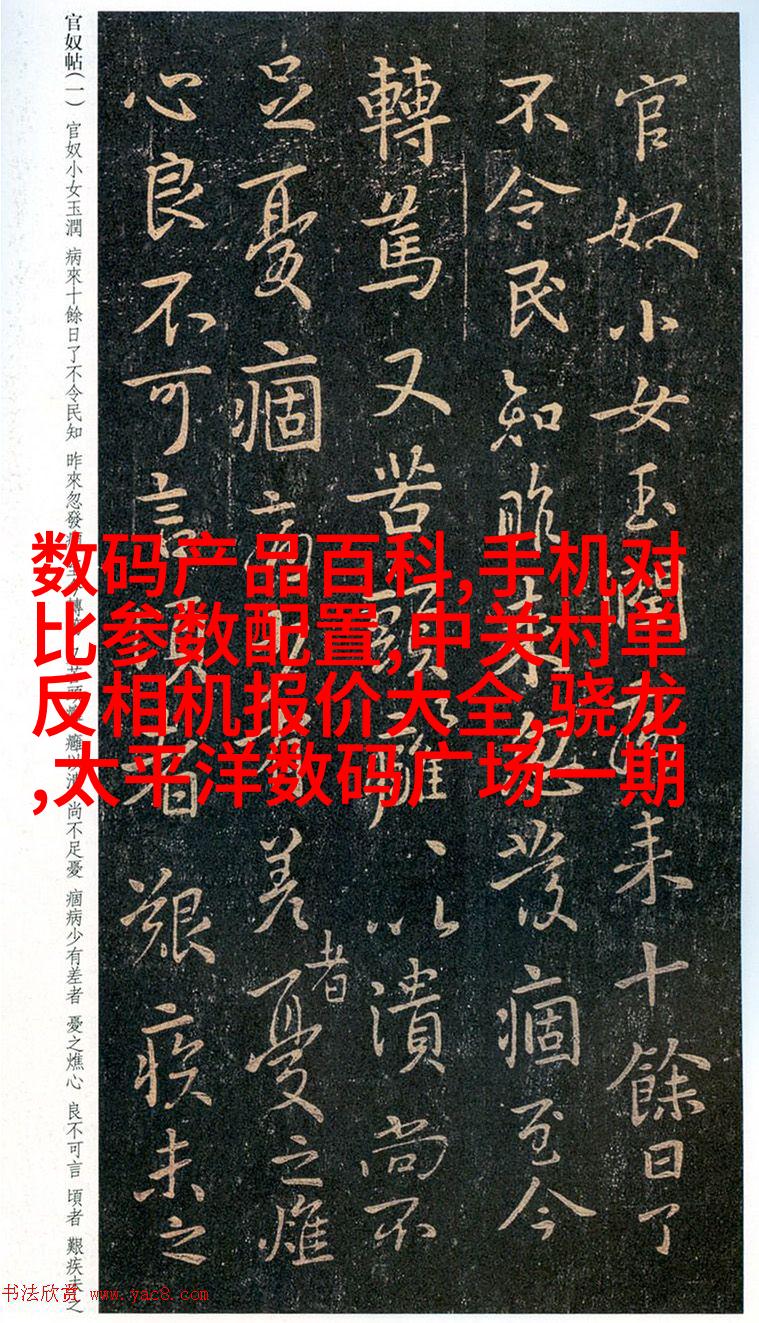 官奴小女玉潤病来十餘日了
不令民知昨来忽發痼至今
轉篤又苦頭癰、以潰尚不
足憂痼病少有差者憂之燋
心良不可言頃者艱疾未之
官奴帖(一) 官奴小女玉潤 病來十餘日了不令民知 昨來忽發痼至今轉篤 又苦頭癰 癰以潰尚不足憂 痼病少有差者 憂之燋心 良不可言 頃者 艱疾未之
数码产品百科,手机对
比参数配置,中关村单
反相机报价大全,骁龙
,太平洋数码广场一期
书法欣赏 www.yac8.com